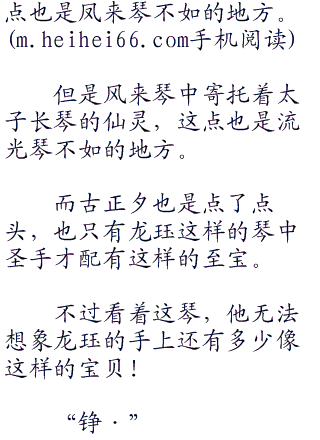 点也是凤来琴不如的地方。
(m.heihei66.com手机阅读)
但是风来琴中寄托着太
子长琴的仙灵，这点也是流
光琴不如的地方。
而古正夕也是点了点
头，也只有龙珏这样的琴中
圣手才配有这样的至宝。
不过看着这琴，他无法
想象龙珏的手上还有多少像
这样的宝贝！
“铮·”